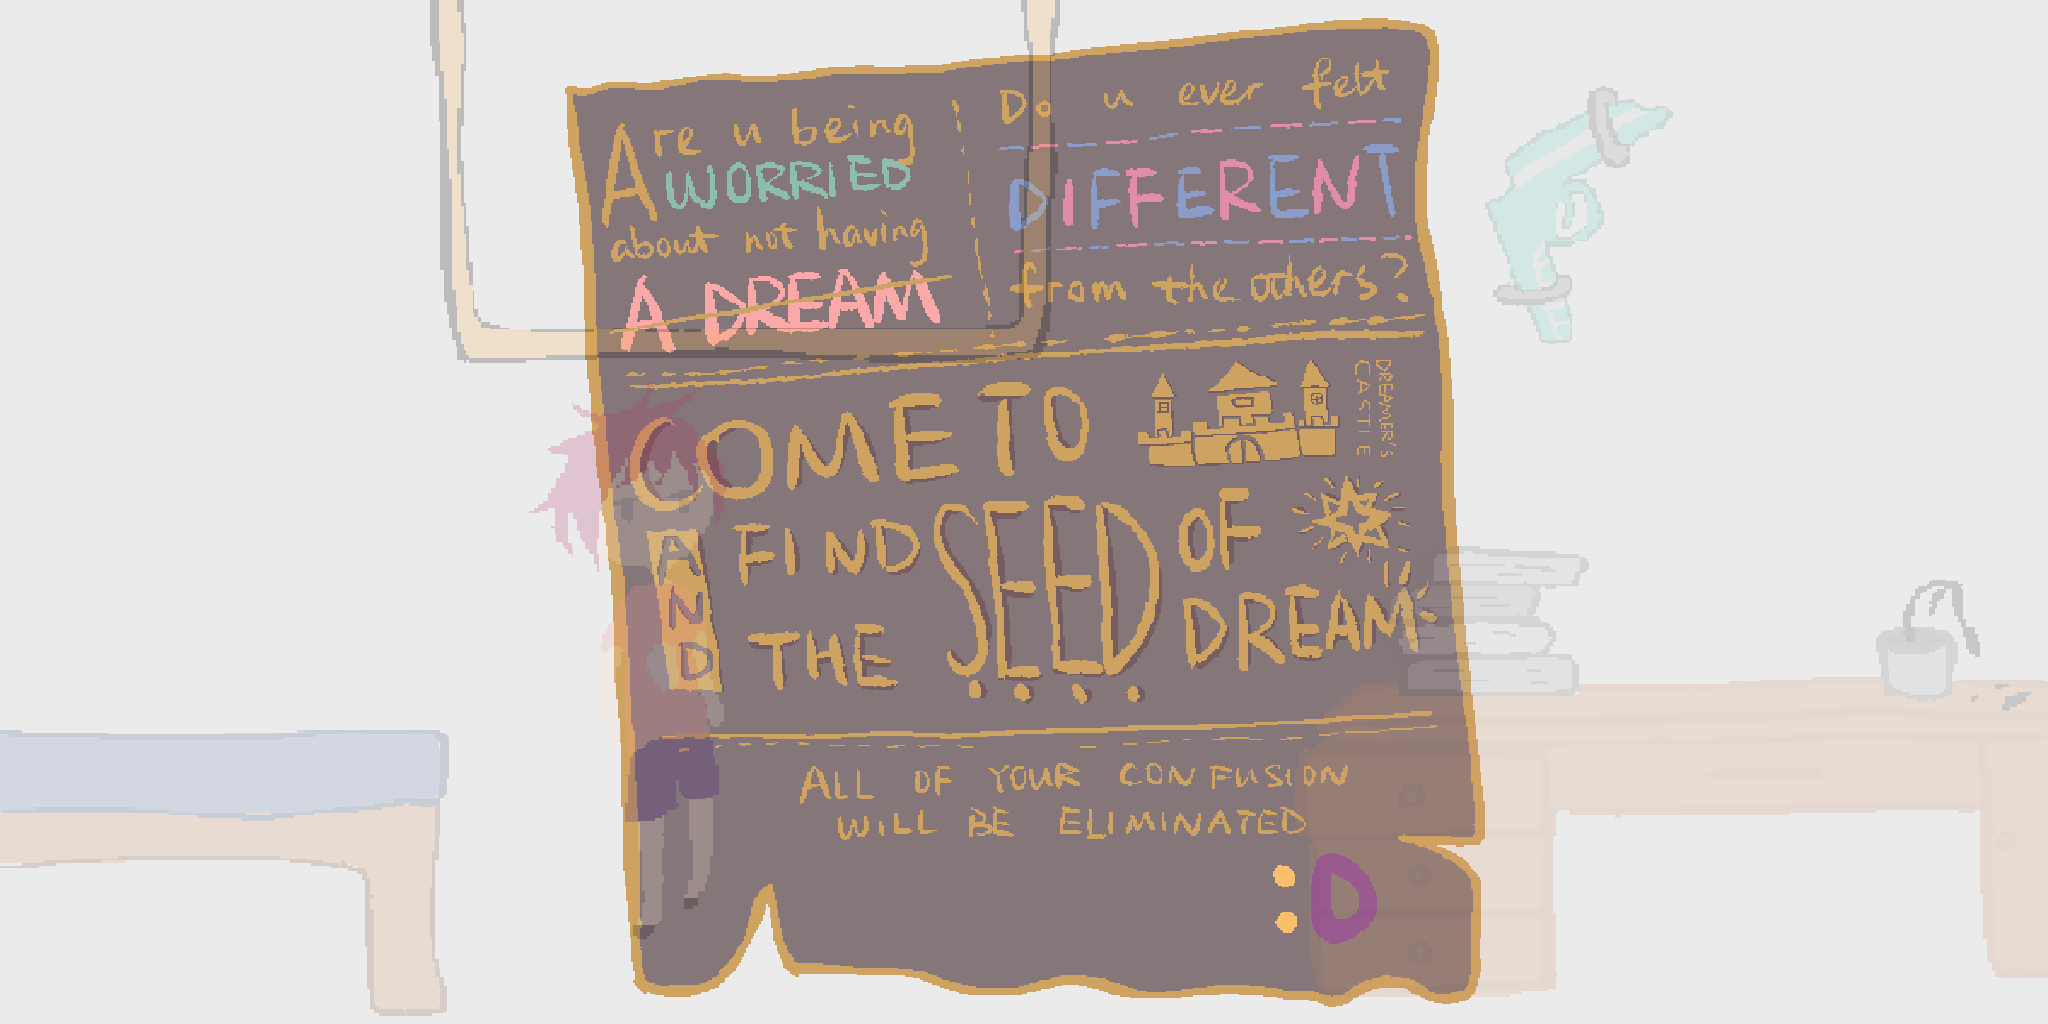 Are u being
WORRIED
about not having
A DREAM
Do u ever felt
DIFFERENT
from the others?
COME TO
DREAMER'S
CASTLE
AND
FIND SEED OF
THE DREAM
ALL OF YOUR CONFUSION
WILL BE ELIMINATED
:D